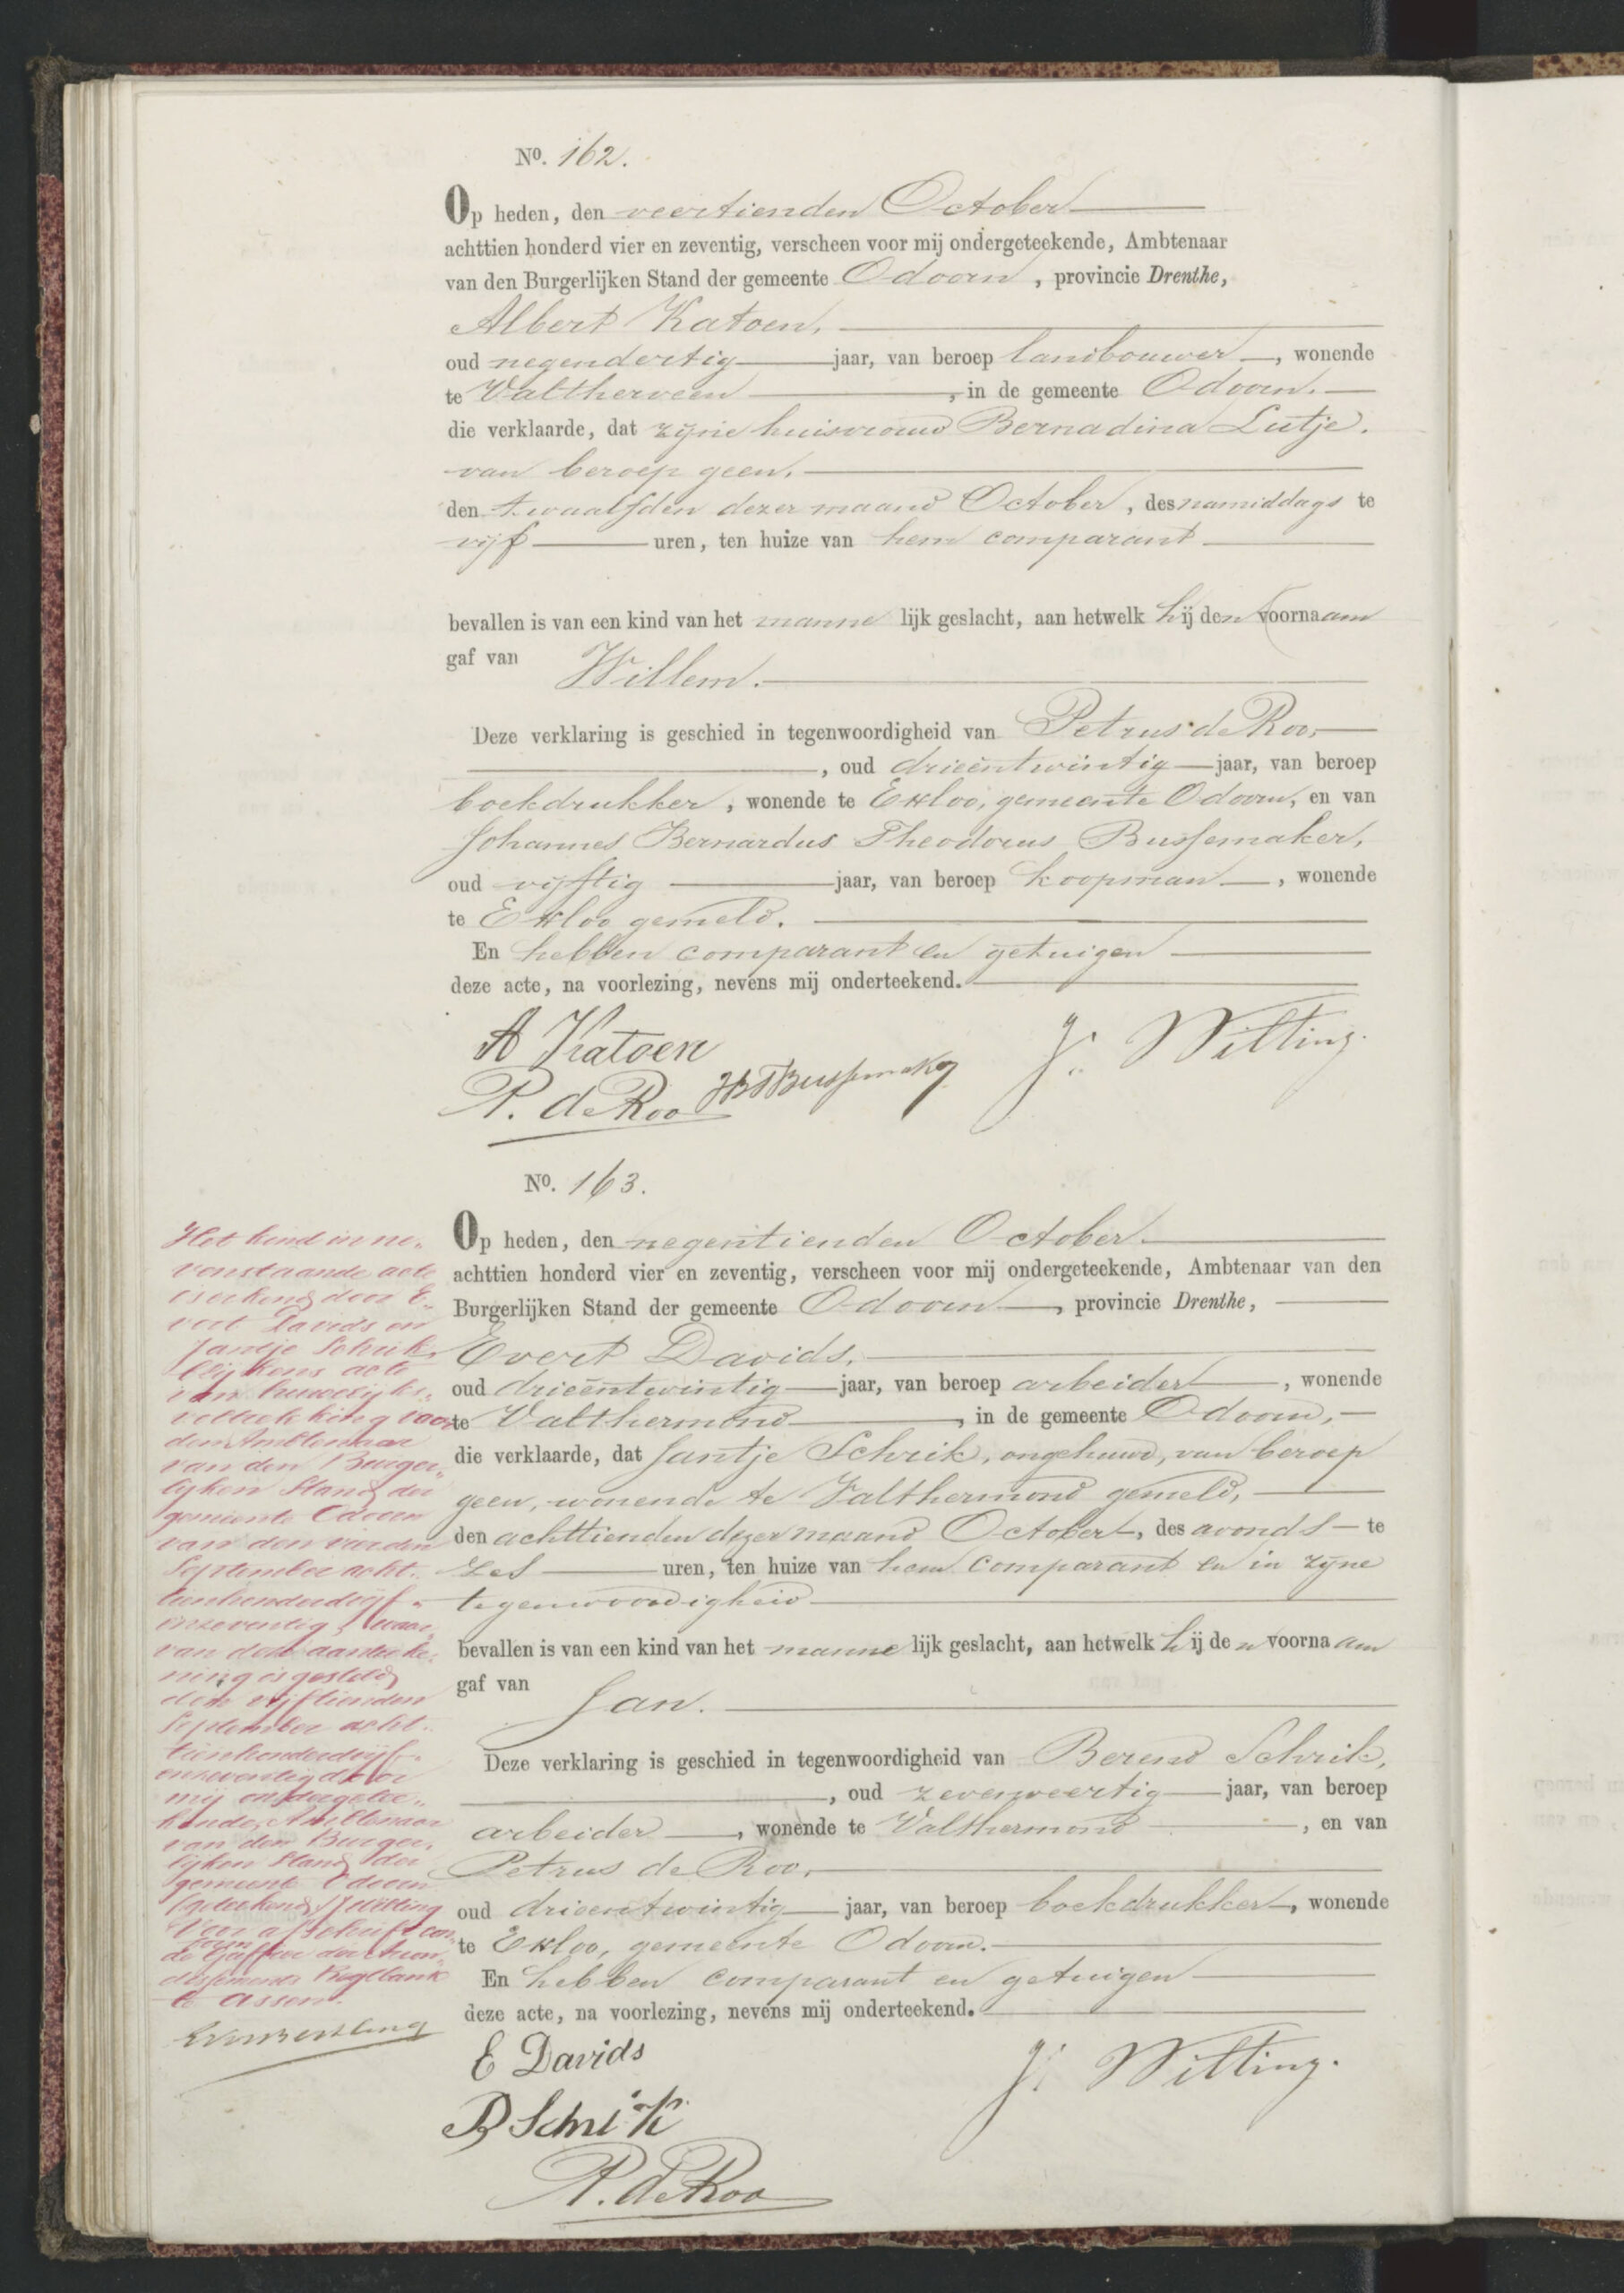 No. 162.
Op heden, den veertienden October
achttien honderd vier en zeventig, verscheen voor mij ondergeteekende, Ambtenaar
van den Burgerlijken Stand der gemeente Odoorn, provincie Drenthe,
Albert Katoen,
oud negendertig jaar, van beroep landbouwer, wonende
te Valtherveen, in de gemeente Odoorn.
die verklaarde, dat zijne huisvrouw Bernadina Lutje.
van beroep geen,
den twaalfden dezer maand October, des namiddags te
vijf uren, ten huize van hem comparant
bevallen is van een kind van het mannelijk geslacht, aan hetwelk hij den voornaam
gaf van Willem.
Deze verklaring is geschied in tegenwoordigheid van Petrus de Roo,
, oud drieëntwintig jaar, van beroep
boekdrukker, wonende te Exloo, gemeente Odoorn, en van
Johannes Bernardus Theodorus Bussemaker,
oud vijftig jaar, van beroep koopman, wonende
te Exloo gemeld.
En hebben comparant en getuigen
deze acte, na voorlezing, nevens mij onderteekend.
A Katoen
J. Wilting.
P. de Roo JBTBussemaker
No. 163.
Op heden, den negentienden October
achttien honderd vier en zeventig, verscheen voor mij ondergeteekende, Ambtenaar van den
Burgerlijken Stand der gemeente Odoorn, provincie Drenthe,
Evert Davids,
oud drieëntwintig jaar, van beroep arbeider, wonende
te Valthermond, in de gemeente Odoorn,
die verklaarde, dat Jantje Schrik, ongehuwd, van beroep
geen, wonende te Valthermond gemeld,
den achttienden dezer maand October, des avonds te
zes uren, ten huize van hem comparant en in zijne
tegenwoordigheid
bevallen is van een kind van het mannelijk geslacht, aan hetwelk hij den voornaam
gaf van Jan.
Deze verklaring is geschied in tegenwoordigheid van Berend Schrik,
, oud zevenveertig jaar, van beroep
arbeider, wonende te Valthermond, en van
Petrus de Roo,
oud drieentwintig jaar, van beroep boekdrukker, wonende
te Exloo, gemeente Odoorn.
En hebben comparant en getuigen
deze acte, na voorlezing, nevens mij onderteekend.
E Davids
J. Wilting.
B Schrik
P. de Roo
Het kind in ne-
venstaande acte
is erkend door E-
vert Davids en
Jantje Schrik
blijkens acte
van huwelijks-
voltrekking voor
den Ambtenaar
van den Burger-
lijken Stand der
gemeente Odoorn
van den vierden
September acht-
tienhonderdvijf-
enzeventig, waar-
van deze aanteeke-
ning is gesteld
den vijftienden
September acht-
tienhonderdvijf-
enzeventig door
mij ondergetee-
kende, Ambtenaar
van den Burger-
lijken Stand der
gemeente Odoorn
(geteekend) J Wilting
Voor afschrift con-
form
de Griffier der Arron-
dissements Regtbank
te Assen.